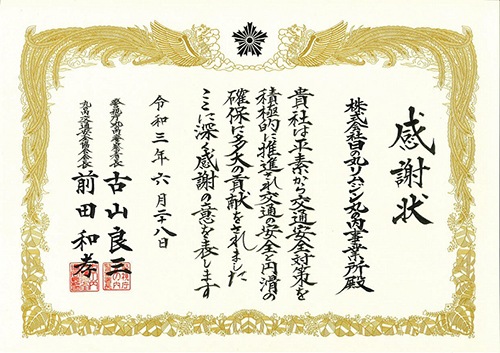 感謝状
株式会社日の丸リムジン丸の内事業所殿
貴社は平素から交通安全対策を
積極的に推進され交通の安全と円滑の
確保に多大の貢献をされました
ここに深く感謝の意を表します
令和三年六月二十八日
警視庁丸の内警察署長
古山良三
丸の内交通安全協会会長
前田和孝